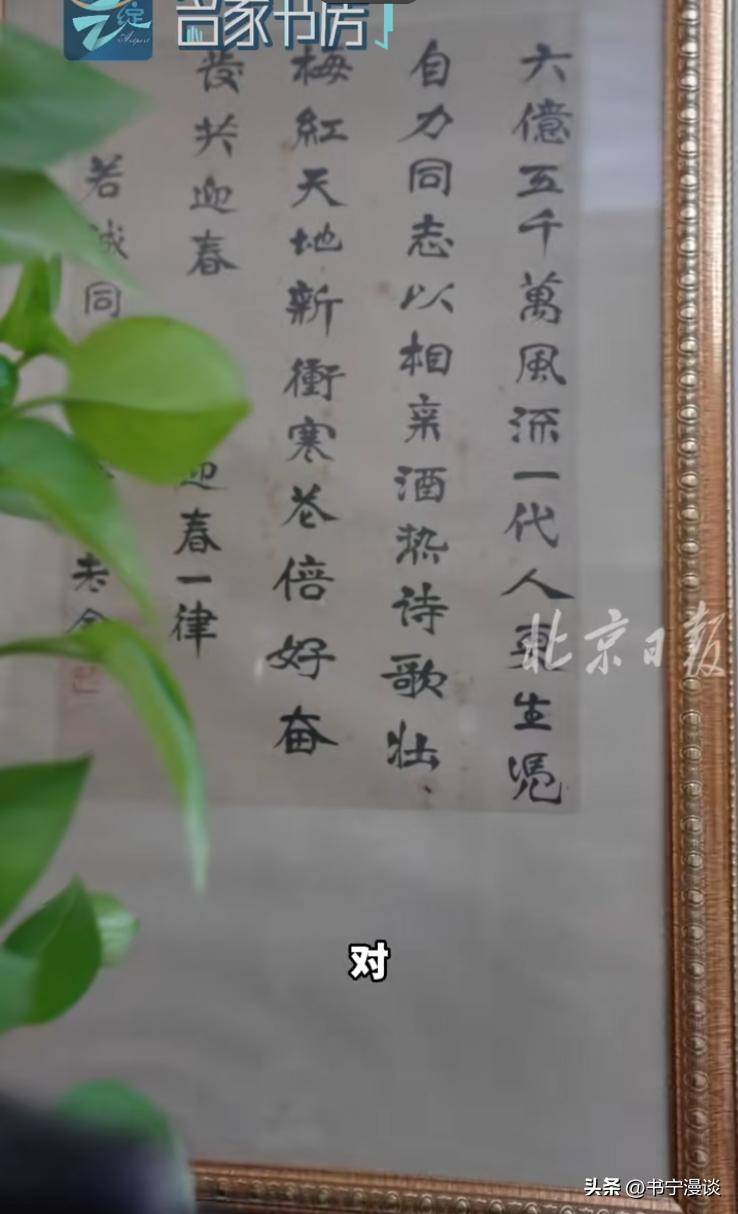 名家书房
六億五千萬風流一代人更生憑
自力同志以相亲酒热诗歌壮、
梅紅天地新衝寒花倍好奋
發共迎春
迎春一律
若诚同
老舍
北京日报
对
头条 @书宁漫谈